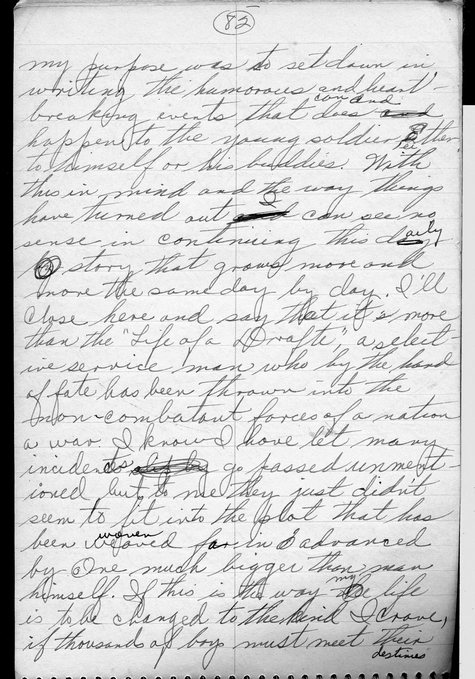 82
my purpose was to set down in
writing the humorous and heart-
breaking events that does can and
happen to the young soldier Either
to himself or his buddies. With
this in mind and the way things
have turned out I can see no
sense in continuing this daily
story that grows more and
more the same day by day. I'll
close here and say that it's more
than the "Life of a Draftee", a select-
ive service man who by the hand
of fate has been thrown into the
non-combatant forces of a nation
a war. I know I have let many
incidents go passed unment-
ioned, but to me they just didn't
seem to fit into the plot that has
been woven far in advanced
by One much bigger than man
himself. If this is the way my life
is to be changed to the kind I crave,
if thousands of boys must meet their
destinies